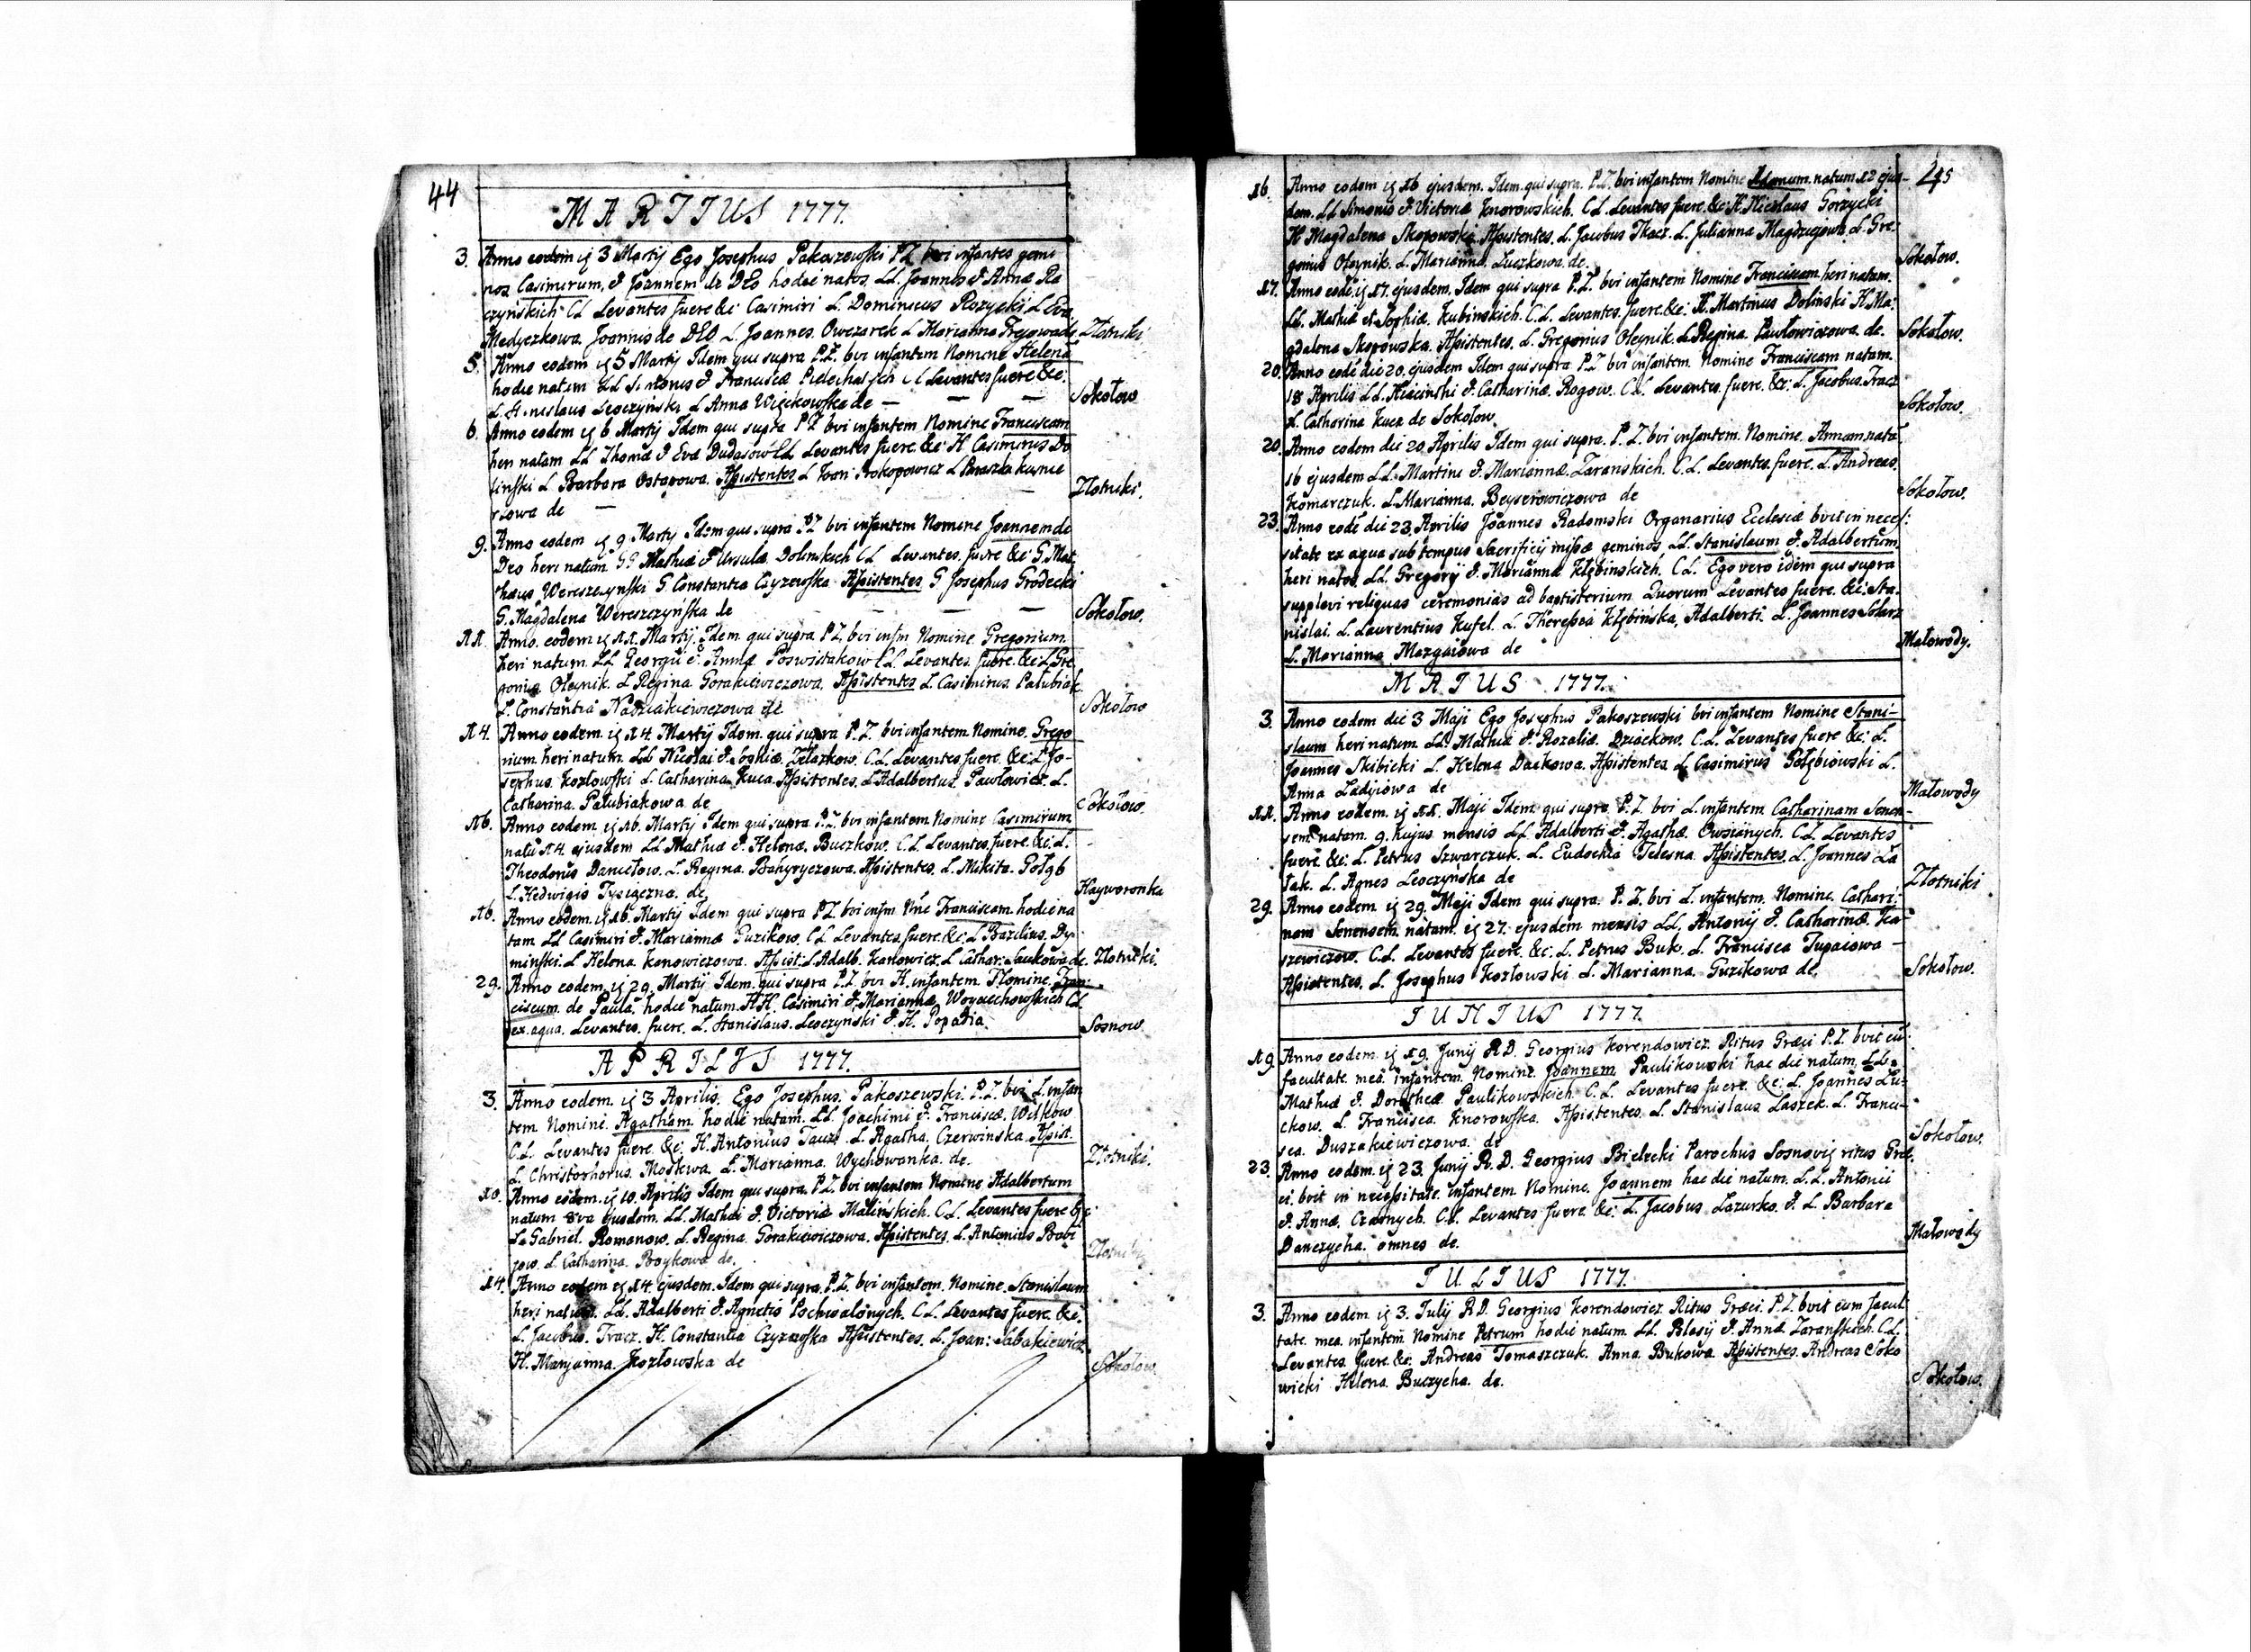 44
MARTIUS 1777.
3. Anno eodem ig 3 Martij Ego Josephus Pakoszewski P.Z. bvi infantes gemi
nos Casimirum, & Joannem de DEo hodie natos, LL. Joannis & Annæ Ra
czyńskich CL Levantes fuere &c: Casimiri L. Dominicus Rozycki L Eva
Medyczkowa. Joannis de DEO L Joannes Owczarek L Marianna de Złotniki
5. Anno eodem ig 5 Martij Idem qui supra P.Z. bvi infantem Nomine Helena
hodie natam LL Simonis & Franciscæ CL Levantes fuere &c:
L. Stanislaus Leoczyński L Anna Więckowska de — — — Sokołow
6. Anno eodem ig 6 Martij Idem qui supra P Z bvi infantem Nomine Franciscam
heri natam LL Thomæ & Evæ Dudasów CL Levantes fuere &c: H Casimirus Do
liński L Barbara Ostapowa. Assistentes L Iwan Prokopowicz L Paraszka kusnie
rzowa de — Złotniki.
9. Anno eodem ig 9 Martij Idem qui supra P.Z. bvi infantem Nomine Joannem de
Deo heri natum GG Mathiæ & Ursulæ Dolinskich CL Levantes fuere &c: G. Mat
thæus Wereszczyński G Constantia Czyzewska Assistentes G Josephus Grodecki
G. Magdalena Wereszczyńska de — — — Sokołow.
11. Anno eodem ig 11. Martij. Idem qui supra P.Z. bvi infm Nomine Gregorium
heri natum LL Georgii & Annæ Poswistakow CL. Levantes fuere. &c: L Gre
gorius Oleynik. L Regina Gorakiewiczowa, Assistentes L. Casimirus Pałubiak
L. Constantia Nadziakiewiczowa de Sokołow
14. Anno eodem ig 14 Martij Idem qui supra P.Z. bvi infantem Nomine. Grego
rium heri natum. LL Nicolai & Sophiæ Zelazkow. C.L. Levantes fuere. &c: L. Jo-
sephus Kozłowski L. Catharina Kuca. Assistentes. L. Adalbertus Pawłowicz. L.
Catharina Pałubiakowa de Sokołow.
16. Anno eodem ig 16. Martij Idem qui supra P.Z. bvi infantem Nomine Casimirum
natu 14 ejusdem LL Mathiæ & Helenæ. Buczkow. C.L. Levantes, fuere. &c: L.
Theodorus Daniełow. L. Regina. Bahyryczowa. Assistentes. L. Mikita. Gołąb
L. Hedwigis Tysięczna. de Hayworonka
16. Anno eodem. ig 16. Martij Idem qui supra P.Z. bvi infm Nne Franciscam hodie na
tam LL Casimiri & Mariannæ Guzikow. C.L. Levantes fuere. &c: L Bazilius. Dy
minski. L Helena Kanowiczowa. Assist: L Adalb. Kanowicz. L Cathar: Saukowa de Złotniki.
29. Anno eodem. ig 29. Martij Idem qui supra P.Z. bvi H. infantem Nomine Fran-
ciscum de Paula hodie natum. HH. Casimiri & Mariannæ Woyciechowskich CL
ex aqua. Levantes. fuere. L. Stanislaus. Leoczynski & H. Popadia. Sosnow.
APRILIS 1777.
3. Anno eodem. ig 3 Aprilis. Ego Josephus. Pakoszewski. P.Z. bvi L. infan
tem Nomine. Agatham hodie natam. LL. Joachimi & Franciscæ. Wilkow
C.L. Levantes fuere &c: H. Antonius Tauz. L. Agatha. Czerwinska. Assist.
L. Christophorus. Moskwa. L. Marianna. Wychowanka. de. Złotniki.
10. Anno eodem. ig 10. Aprilis Idem qui supra. P.Z. bvi infantem Nomine Adalbertum
natum 8va ejusdem. LL. Mathæi & Victoriæ Malinskich. C.L. Levantes fuere &c:
L. Gabriel. Romanow. L. Regina Gorakiewiczowa. Assistentes. L. Antonius Babi
jow. L. Catharina Boykowa de. Złotniki
14. Anno eodem ig 14. ejusdem. Idem qui supra. P.Z. bvi infantem. Nomine. Stanislaum
heri natum. LL. Adalberti & Agnetis Pochwalonych. C.L. Levantes fuere. &c:
L. Jacobus. Tracz. H. Constantia Czyzewska Assistentes. L. Joan: Sabakiewicz
H. Maryanna Kozłowska de Sokołow.
45
16. Anno eodem ig 16 ejusdem. Idem qui supra. P.Z. bvi infantem Nomine Adamum. natum 12 ejus-
dem. LL Simonis & Victoriæ Knorowskich. C.L. Levantes fuere. &c: H. Nicolaus Gorzycki
H Magdalena Skopowska. Assistentes. L. Jacobus Tkacz. L. Julianna L. Gre-
gorius Oleynik. L. Marianna. Luczkowa. de. Sokołow.
17. Anno eodē. ig 17. ejusdem. Idem qui supra P.Z. bvi infantem Nomine Franciscum heri natum.
LL. Mathiæ et Sophiæ. Kubinskich. C.L. Levantes. fuere. &c: H. Martinus Doliński H. Ma-
gdalena Skopowska. Assistentes. L. Gregorius Oleynik. L. Regina. Pawłowiczowa. de. Sokołow.
20. Anno eodē die 20. ejusdem Idem qui supra P.Z bvi infantem. Nomine Franciscam natam.
18 Aprilis LL. Hiacinthi & Catharinæ. Rogow. C.L. Levantes. fuere. &c: L. Jacobus. Tracz
L. Catharina Kuca de Sokołow. Sokołow.
20. Anno eodem die 20 Aprilis Idem qui supra. P.Z. bvi infantem. Nomine. Annam natā
16 ejusdem LL. Martini & Mariannæ. Zaranskich. C.L. Levantes. fuere. L. Andreas.
Komarczuk. L. Marianna. Beyserowiczowa de Sokołow.
23. Anno eodē die 23 Aprilis Joannes Radomski Organarius Ecclesiæ bvit in neces-
sitate ex aqua sub tempus Sacrificij missæ geminos LL. Stanislaum & Adalbertum.
heri natos LL. Gregorij & Mariannæ Kłębinskich. C.L. Ego vero idem qui supra
supplevi reliquas ceremonias ad baptisterium Quorum Levantes fuere. &c: Sta-
nislai. L. Laurentius Kufel. L. Theressia Kłębinska, Adalberti. L. Joannes Stolarz
L. Marianna Mazgaiowa de Małowody.
MAIUS 1777.
3. Anno eodem die 3 Maji Ego Josephus Pakoszewski bvi infantem Nomine Stani-
slaum heri natum LL. Mathiæ & Rozaliæ. Dziackow. C.L. Levantes fuere &c: L.
Joannes Skibicki L. Helena Daćkowa. Assistentes L. Casimirus Gołębiowski L.
Anna Ładyiowa de Małowody
11. Anno eodem. ig 11. Maji Idem qui supra P.Z. bvi L. infantem. Catharinam Senen-
sem natam. 9. hujus mensis LL Adalberti & Agathæ. Owsianych. C.L Levantes
fuere. &c: L. Petrus Szwarczuk. L. Eudochia Telesna. Assistentes. L. Joannes Ła
tak. L. Agnes Leoczynska de Złotniki
29. Anno eodem ig 29. Maji Idem qui supra. P.Z. bvi L. infantem. Nomine. Cathari-
nam Senensem. natam. ig 27. ejusdem mensis LL. Antonij & Catharinæ. Ica-
szewiczow. C.L. Levantes fuere &c: L. Petrus Buk. L. Francisca Tupaiowa —
Assistentes. L. Josephus Kozłowski L. Marianna. Guzikowa de. Sokołow.
IUNIUS 1777.
19. Anno eodem ig 19. Junij R.D. Georgius Korendowicz. Ritus Græci P.Z. bvit cū
facultate. mea. infantem. Nomine. Joannem Paulikowski hac die natum. LL.
Mathiæ & Dorotheæ Paulikowskich. C.L. Levantes fuere. &c: L. Joannes Lu-
ckow. L. Francisca Knorowska. Assistentes. L. Stanislaus Laszek. L. Franci-
sca. Duszakiewiczowa. de Sokołow.
23. Anno eodem. ig 23. Junij R.D. Georgius Bielecki Parochus Sosnovij ritus Græ-
ci. bvit in necessitate. infantem Nomine. Joannem hac die natum. L.L. Antonii
& Annæ Czarnych. C.L. Levantes fuere. &c: L. Jacobus Lazurko. & L. Barbara
Danczycha. omnes de. Małowody
IULIUS 1777.
3. Anno eodem ig 3. Julij R.D. Georgius Korendowicz. Ritus Græci. P.Z. bvit cum facul
tate. mea. infantem Nomine Petrum hodie natum LL. Blasij & Annæ Zaranskich. C.L.
Levantes. fuere. &c. Andreas Tomaszczuk. Anna. Bukowa. Assistentes. Andreas Soko
wicki Helena. Buczycha. de. Sokołow.